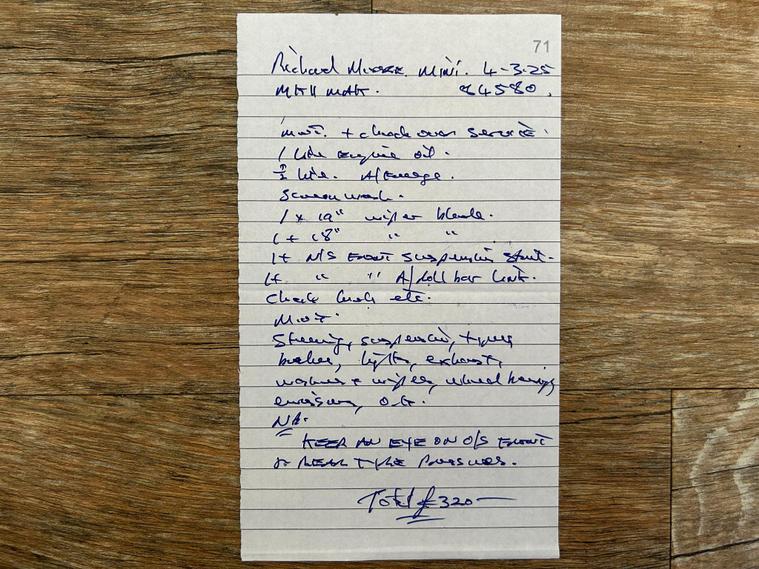 71
Richard Mini. 4-3-25
84580.
M.O.T. + check over service.
1 Litre engine oil.
½ litre. A/freeze.
Screen wash.
1 x 19" wiper blade.
1 + 18" " "
1+ N/S FRONT suspension strut.
1+ " " A/roll bar link.
check leads etc.
M.O.T.
Steering, suspension, tyres
brakes, lights, exhaust,
washers + wipers, wheel bearings
emissions, O.K.
NB.
KEEP AN EYE ON O/S FRONT
& REAR TYRE PRESSURES.
Total £320—